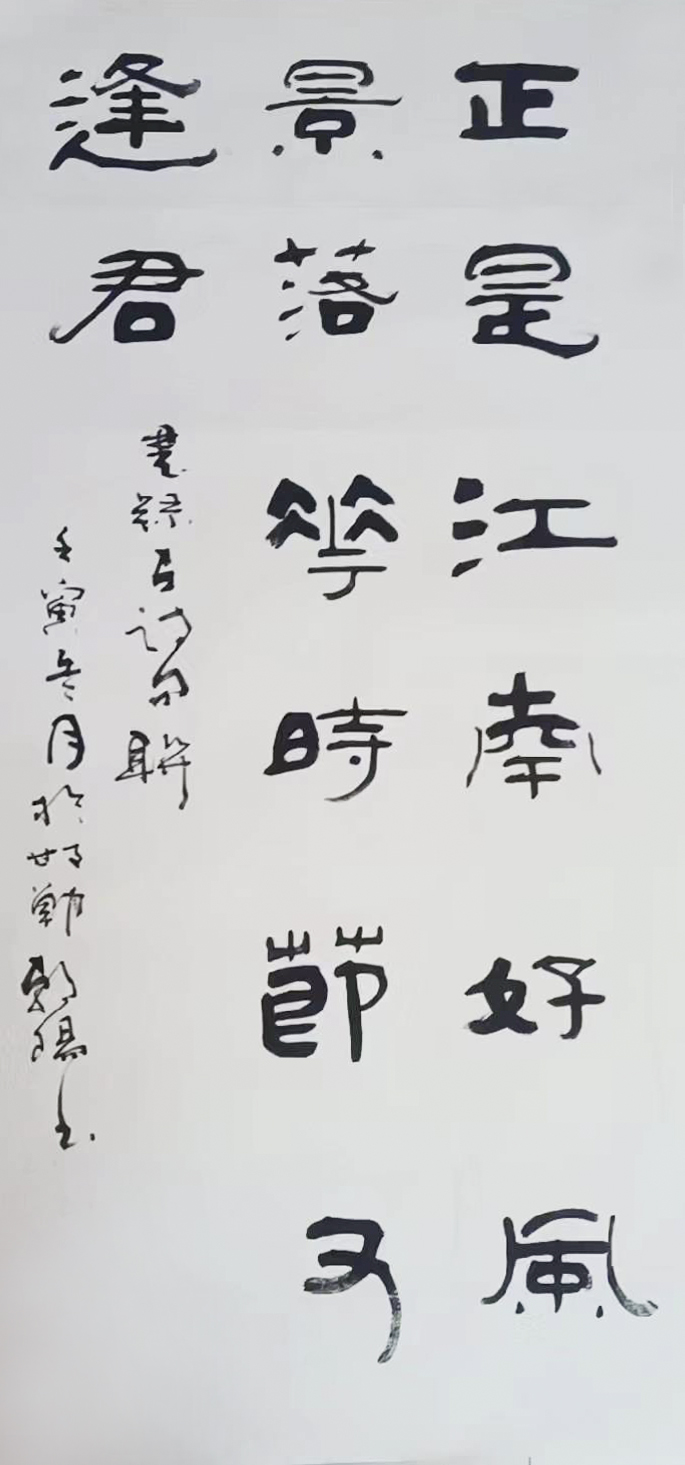 正是江南好風
景落花時節又
逢君
書錄古詩句聯
壬寅冬月於
書